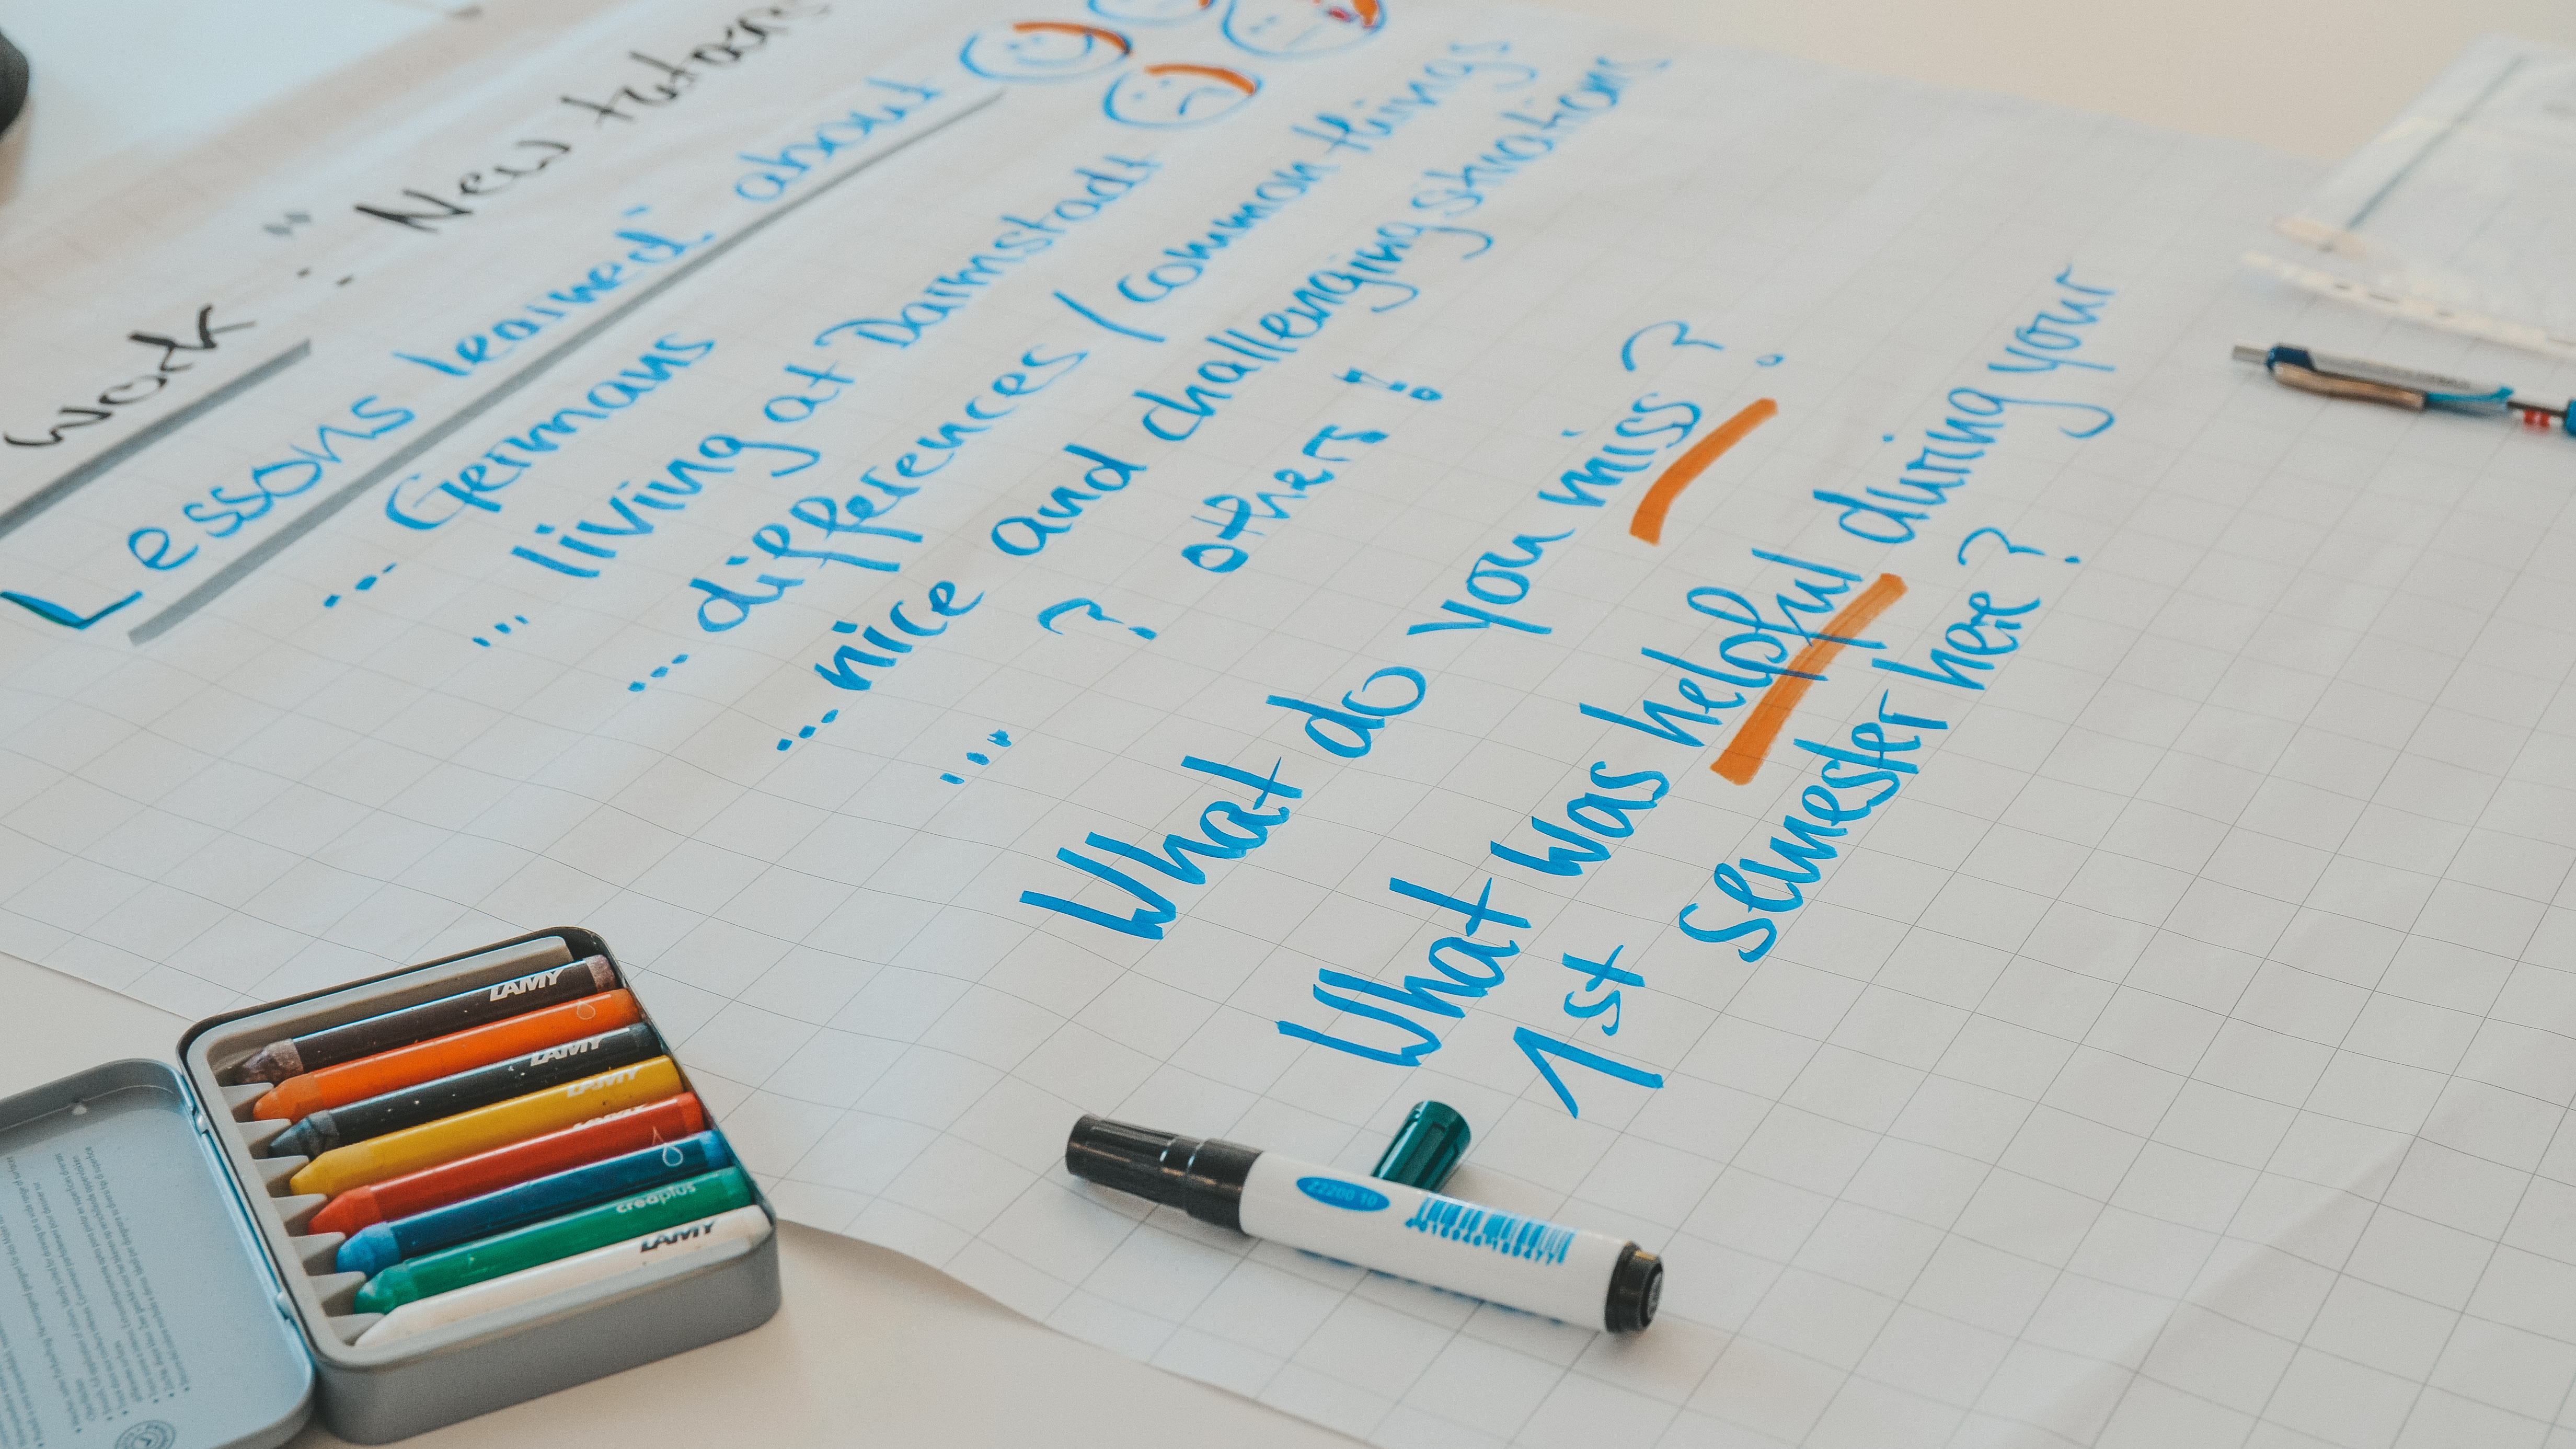 work : " New tutors
Lessons learned" about
... Germans
... living at Darmstadt
... differences / common things
... nice and challenging situations
... ? others!
What do you miss?
What was helpful during your
1st semester here?
LAMY
LAMY
LAMY
LAMY
creaplus
LAMY
Z2200.10